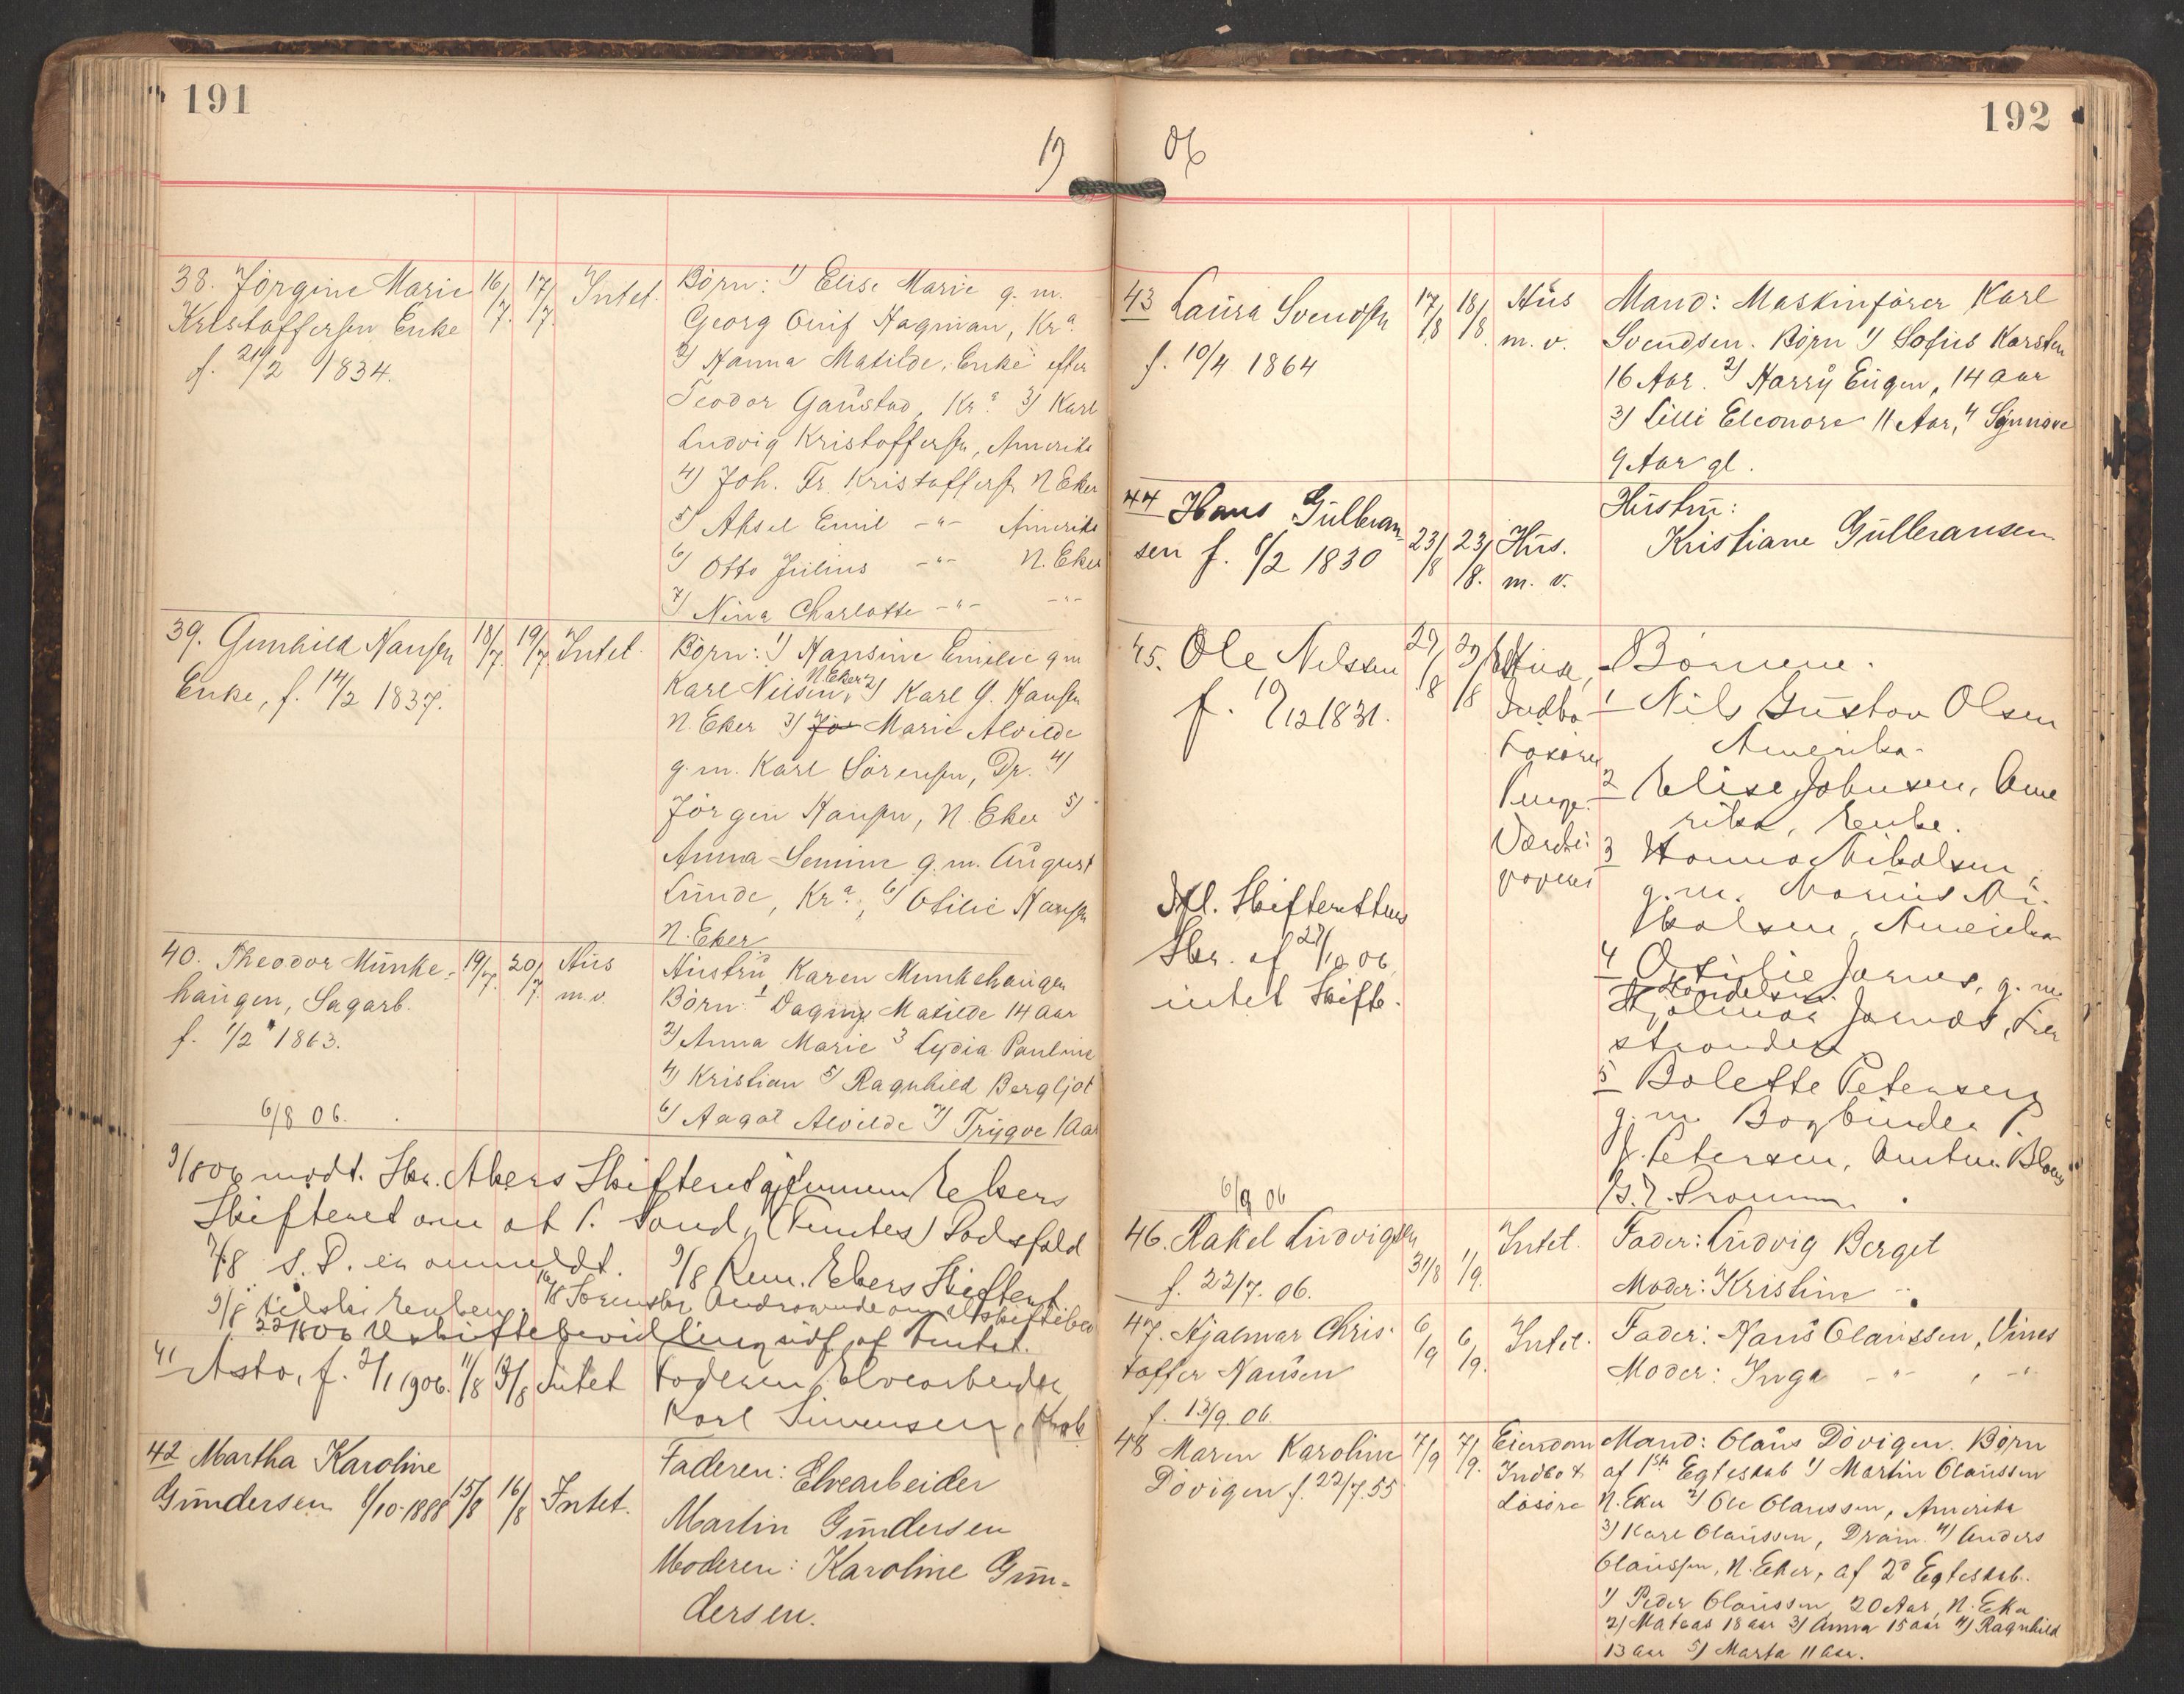 191
19
38. Jörgine Marie 16/7. 17/7. Intet. Börn: 1) Elise Marie g. m.
Kristoffersen Enke Georg Hagman, Kra.
f. 21/2 1834. 2) Hanna Matilde, Enke efter
Teodor Gaustad, Kra. 3) Karl
Ludvig Kristoffersen, Amerika
4) Joh. Fr. Kristoffersen N. Eker
5) Aksel Emil -"- Amerika
6) Otto Julius -"- N. Eker
7) Nina Charlotte -"- -"-
39. Gunhild Hansen 18/7. 19/7. Intet. Börn: 1) Hansine Emilie g m
Enke, f. 14/2 1837. Karl Nilsen, N. Eker 2) Karl G. Hansen
N. Eker 3) Jo Marie Alvilde
g. m. Karl Sörensen, Dr. 4)
Jörgen Hansen, N. Eker 5)
Anna g. m. August
Lunde, Kra., 6) Otilie Hansen
N. Eker
40. Theodor Munke- 19/7. 20/7. Hus Hustru Karen Munkehaugen
haugen, Sagarb. m. v. Börn: 1 Dagny Matilde 14 aar
f. 1/2 1863. 2) Anna Marie 3 Lydia Pauline
4) Kristian 5) Ragnhild Bergljot
6/8 06. 6) Aagot Alvilde 7) Trygve 1 Aar
9/8 06 modt. Skr. Akers Skifteret Ekers
Skifteret om at (Tentes) Dödsfald
7/8 s. D. er anmeldt. 9/8 Rem. Ekers Skifteret
9/8 tilskr. Enken. 16/8
22/8 06 Uskiftebevilling udf. af
41 Asta, f. 2/1 1906. 11/8 13/8 Intet Faderen, Elvearbeider
Karl Simensen,
42 Martha Karoline Faderen: Elvearbeider
Gundersen 6/10-1888 15/8 16/8 Intet. Martin Gundersen
Moderen: Karoline Gun-
dersen.
192
06
43 Laura Svendsen 17/8 18/8. Hus Mand: Maskinförer Karl
f. 10/4 1864 m. v. Svendsen. Börn 1) Sofus Karsten
16 Aar. 2) Harry Eugen, 14 aar
3) Lilli Eleonore 11 Aar, 4) Synnöve
9 Aar gl.
44 Hans Gulbran- Hustru:
sen f. 6/2 1830 23/8 23/8. Hus. Kristiane Gulbransen
m. v.
45. Ole Nilssen 29/8 29/8 Huse, Börnene.
f. 19/12 1831. Indbo 1 Nils Gustav Olsen
Lösöre Amerika.
Penge. 2 Elise Johnsen, Ame
rika, Enke.
Værdi 3 Hanna Nikolsen,
papirer g. m. Marius Ni-
kolsen, Amerika
Ifl. Skifterettens
Skr. af 27/10 06
intet Skifte.
4 Otilie Jarnes, g. m.
Handelsm.
Hjalmar Jarnes, Lier
stranden
5 Bolette Petersen
g. m. Bogbinder P.
J. Petersen,
6/9 06
46. Rakel Ludvigsen 31/8 1/9. Intet. Fader: Ludvig Berget
f. 22/7. 06. Moder: Kristine -"-
47. Hjalmar Chris- 6/9 6/9. Intet. Fader: Hans Olaussen, Vines
toffer Hansen Moder: Inga -"- , -"-
f. 13/9. 06.
48 Maren Karoline 7/9 7/9. Eiendom Mand: Olaus Dövigen. Börn
Dövigen f. 22/7. 55 Indbo & af 1ste Egteskab 1) Martin Olaussen
Lösöre N. Eker 2) Ole Olaussen, Amerika
3) Karl Olaussen, Dram. 4) Anders
Olaussen, N. Eker, af 2d Egteskab.
1) Peder Olaussen, 20 Aar, N. Eker
2) Mateas 18 aar 3) Anna 15 aar 4) Ragnhild
13 aar 5) Marta 11 aar.